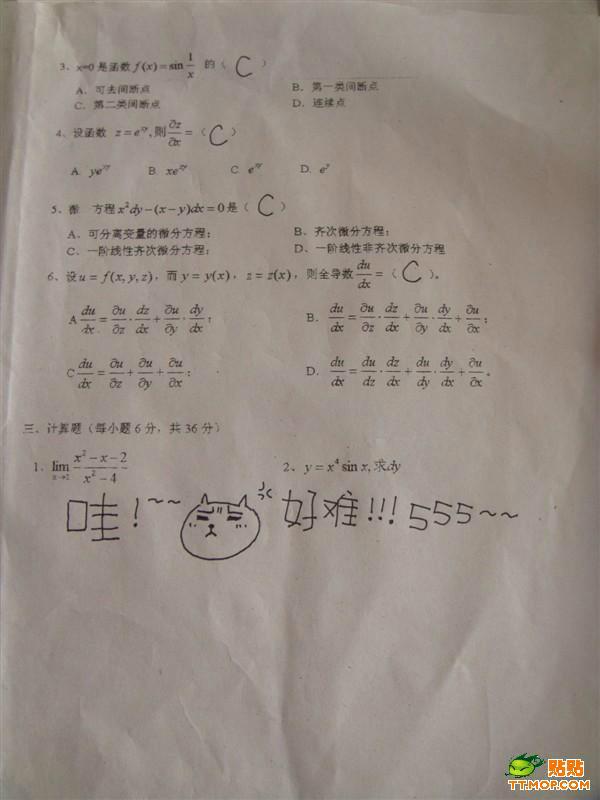 3、x=0 是函数 f(x)=sin 1/x 的（ C ）
A．可去间断点 B．第一类间断点
C．第二类间断点 D．连续点
4、设函数 z=e^{xy},则 ∂z/∂x =（ C ）
A. ye^{xy} B. xe^{xy} C. e^{xy} D. e^y
5、微 方程 x²dy-(x-y)dx=0是（ C ）
A、可分离变量的微分方程； B、齐次微分方程；
C、一阶线性齐次微分方程； D、一阶线性非齐次微分方程
6、设u=f(x,y,z)，而 y=y(x)，z=z(x)，则全导数 du/dx =（ C ）。
A du/dx = ∂u/∂z · dz/dx + ∂u/∂y · dy/dx； B. du/dx = ∂u/∂z · dz/dx + ∂u/∂y · dy/dx + ∂u/∂x；
C du/dx = ∂u/∂z + ∂u/∂y + ∂u/∂x； D. du/dx = du/dz · dz/dx + du/dy · dy/dx + ∂u/∂x。
三、计算题（每小题6分，共36分）
1、lim x→2 (x²-x-2)/(x²-4) 2、y=x⁴ sin x,求dy
哇！~~ 好难!!! 555~~
贴贴
TTMOP.COM